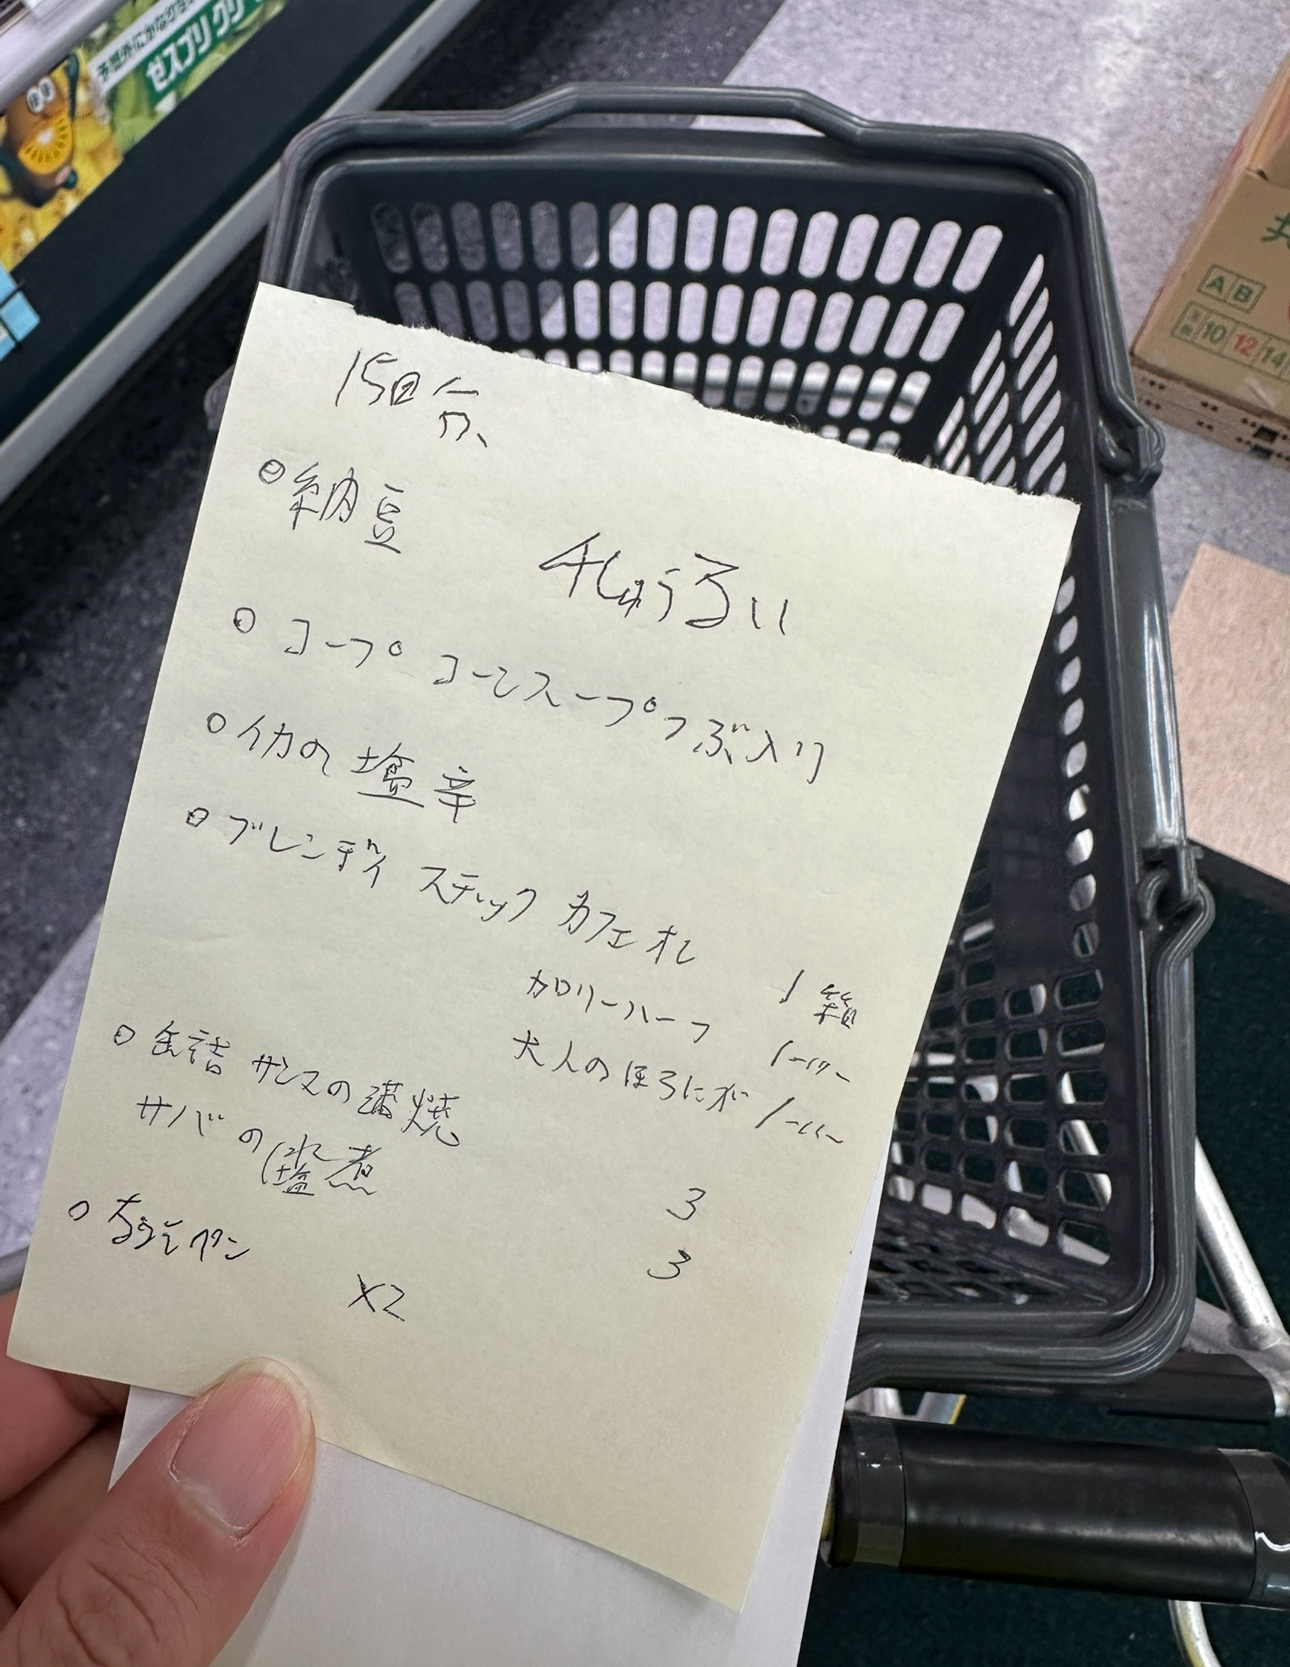 予想外にかなり
ゼスプリ グリ
AB
10 12 14
15回分
納豆
4しゅうるい
コープ コーンスープつぶ入り
イカの塩辛
ブレンディ スティック カフェオレ
1箱
カロリーハーフ
1-〃-
大人のほろにが
1-〃-
缶詰 サンマの蒲焼
3
サバの塩煮
3
ペン
×2